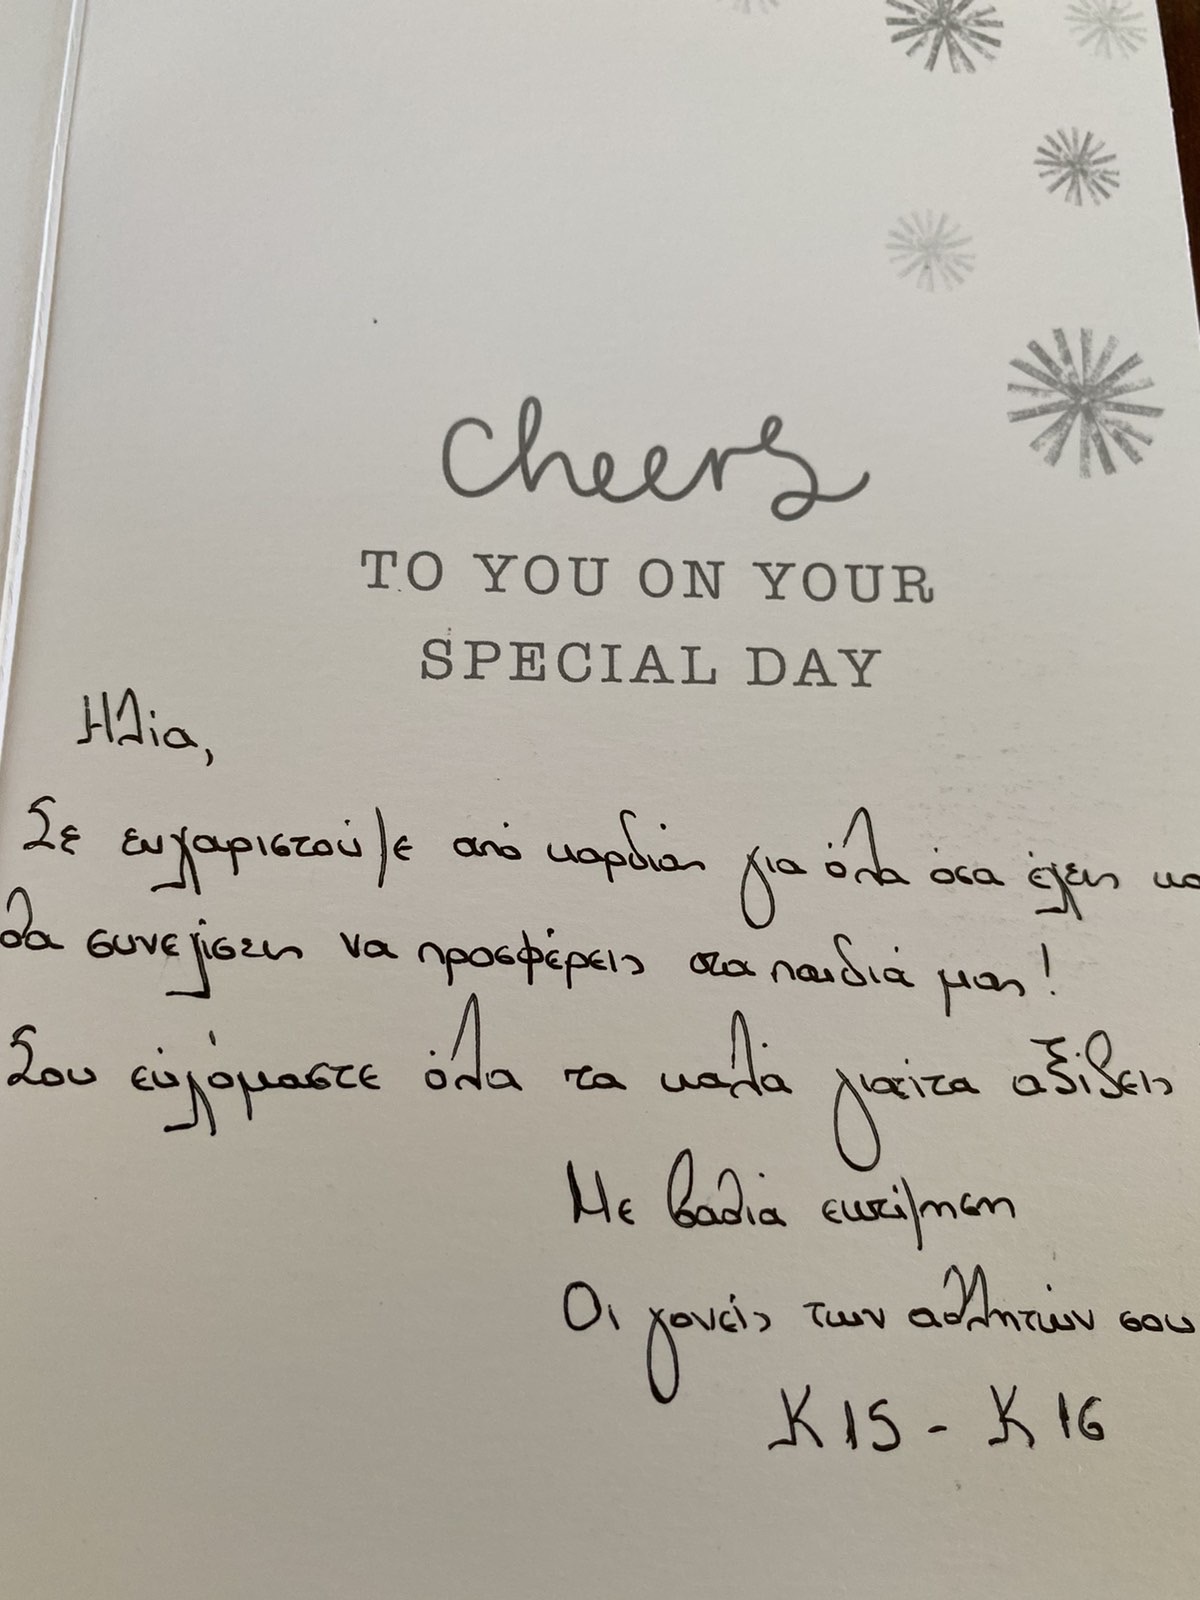 cheers
TO YOU ON YOUR
SPECIAL DAY
Ηλία,
Σε ευχαριστούμε από καρδιάς για όλα όσα έχεις κα
θα συνεχίσεις να προσφέρεις στα παιδιά μας!
Σου ευχόμαστε όλα τα καλά γιατί τα αξίζεις
Με βαθιά εκτίμηση
Οι γονείς των αθλητών σου
Κ15 - Κ16